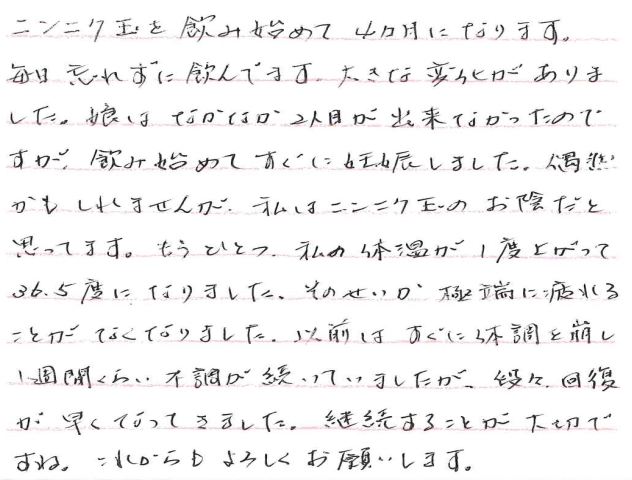 ニンニク玉を飲み始めて4カ月になります。
毎日忘れずに飲んでます。大きな変化がありま
した。娘はなかなか2人目が出来なかったので
すが、飲み始めてすぐに妊娠しました。偶然
かもしれませんが、私はニンニク玉のお陰だと
思ってます。もうひとつ、私の体温が1度上がって
36.5度になりました。そのせいか極端に疲れる
ことがなくなりました。以前はすぐに体調を崩し
1週間くらい不調が続いていましたが、段々回復
が早くなってきました。継続することが大切で
すね。これからもよろしくお願いします。